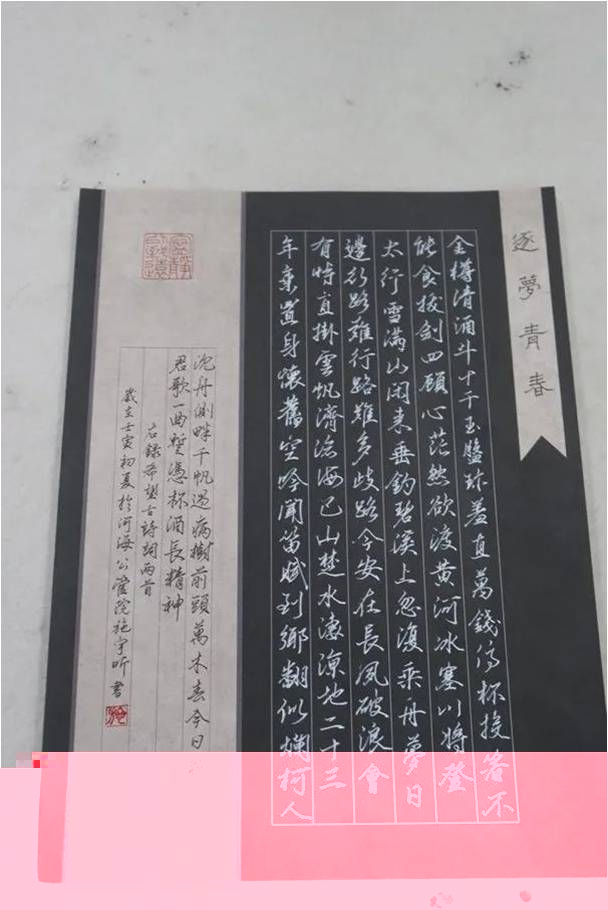 逐夢青春
金樽清酒斗十千玉盤珍羞直萬錢停杯投箸不
能食拔剑四顧心茫然欲渡黄河冰塞川將登
太行雪滿山閑来垂釣碧溪上忽復乘舟夢日
邊行路難行路難多歧路今安在長風破浪會
有時直掛雲帆濟滄海巴山楚水凄涼地二十三
年棄置身懷舊空吟聞笛賦到鄉翻似爛柯人
寧静致遠
沈舟側畔千帆過病樹前頭萬木春今日
君歌一曲暫憑杯酒長精神
右録希望古詩詞兩首
歲在壬寅初夏於河海公管院施宇昕書
施